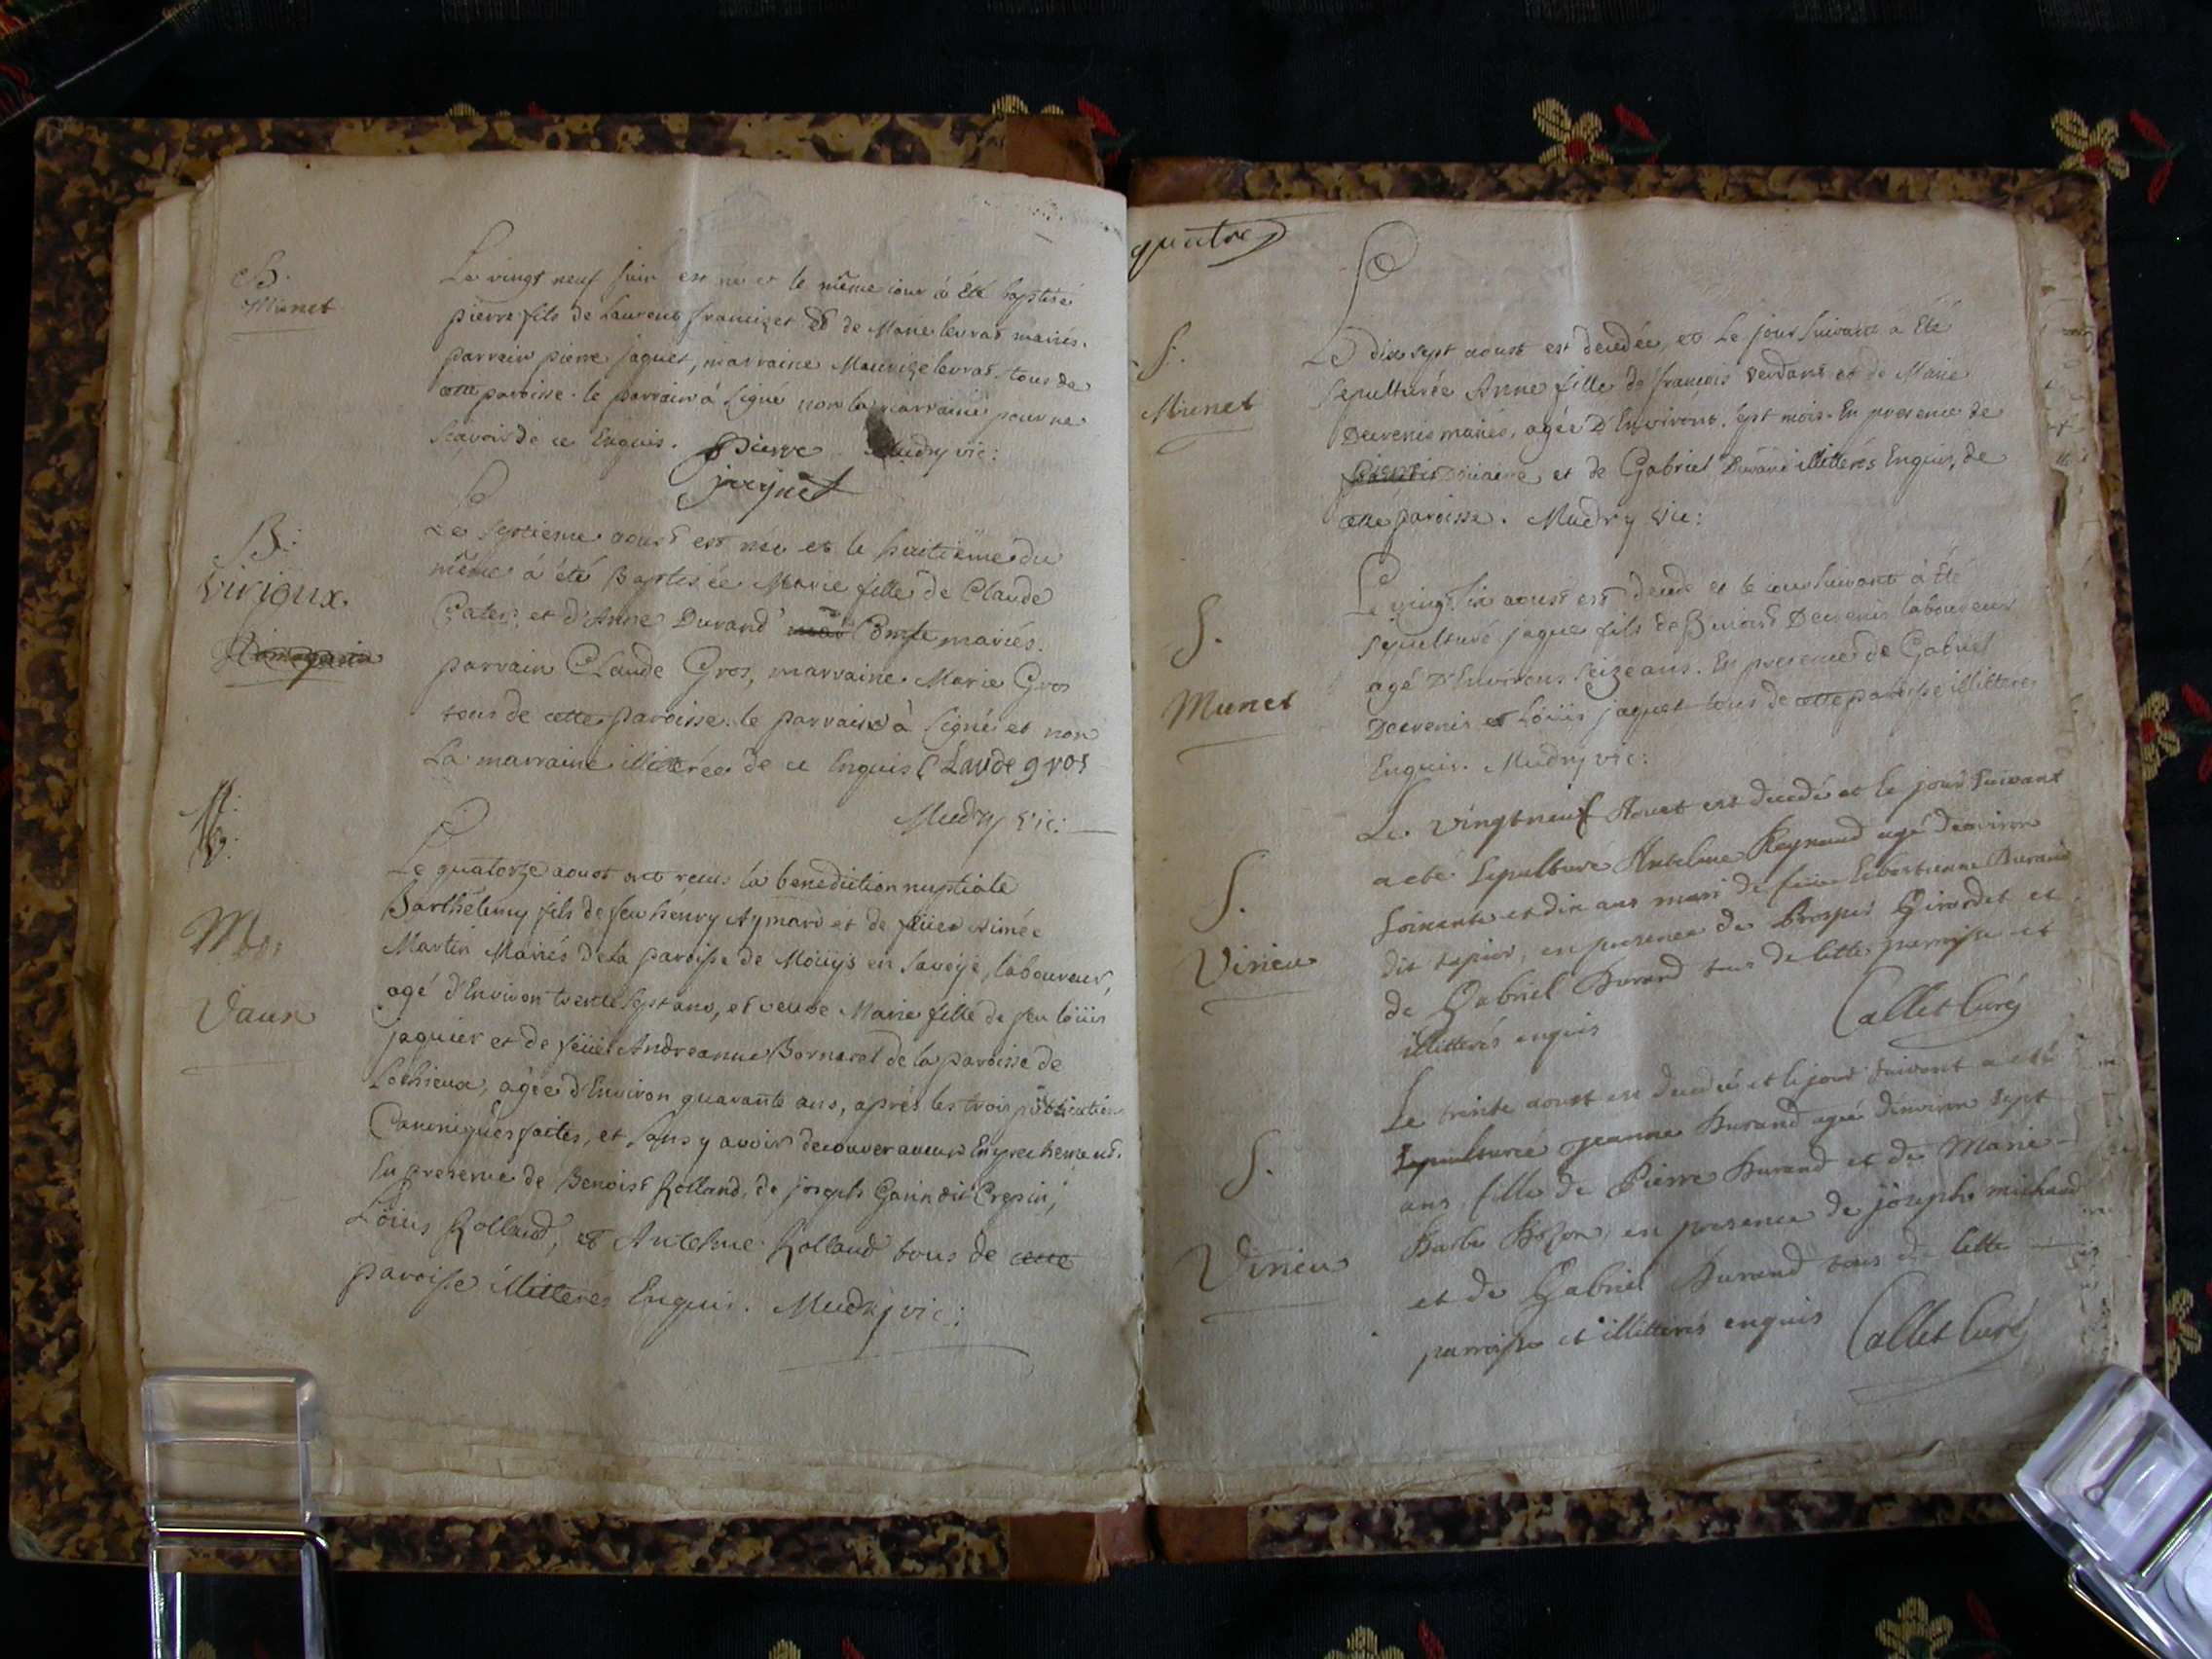 B.
Munet
Le vingt neuf juin est né et le même jour à été baptisé
pierre fils de Laurent francizet et de Marie levrat mariés.
parrain pierre jaquet, marraine Maurize levrat tous de
cette paroisse. le parrain à signé non la marraine pour ne
scavoir de ce Enquis. pierre Mudry vic:
jaquet
B:
Virioux
Le septieme aoust est née et le huitieme du
même à été Baptisée Marie fille de Claude
et d'Anne Durand Comte mariés.
parrain Claude Gros, marraine Marie Gros
tous de cette paroisse. le parrain à signé et non
La marraine illitterée de ce Enquis Claude gros
Mudry vic:
M:
Vaux
Le quatorze aoust ont recus la benediction nuptiale
Barthelemy fils de feu henry Aymard et de feüe Aimée
Martin Mariés de la paroisse de Möuys en Savoye, laboureur,
agé d'Environ trente sept ans, et veuve Marie fille de feu löuis
jaquier et de feüe Andreanne Bornarel de la paroisse de
Lochieux, agée d'Environ quarante ans, aprés les trois publications
Canoniques faites, et sans y avoir decouver aucun Enpechement.
En presence de Benoist Rolland, de joseph Garin dit Crepin,
Löuis Rolland, et Antelme Rolland tous de cette
paroisse illitteres Enquis. Mudry vic:
quatre
S.
Munet
Le dix sept aoust est decedée, et Le jour suivant à Eté
sepulturée Anne fille de francois Verdans et de Marie
Decrenis mariés, agée D'Environs sept mois. En presence de
et de Gabriel Durand illitterés Enquis, de
cette paroisse. Mudry vic:
S.
Munet
Le vingt six aoust est decedé et le jour suivant à Eté
sepulturé jaque fils de Benoist Decrenis laboureur
agé D'Environs seize ans. En presence de Gabriel
Decrenis et Löuis jaquet tous de cette paroisse illitteres
Enquis. Mudry vic:
S.
Virieu
Le vingt neuf Aoust est decedé et le jour suivant
a eté sepulturé Antelme Reynaud agé denviron
soixante et dix ans mari de feüe Sebastienne Durand
dit en presence de Prosper Girardet et
de Gabriel Durand tous de cette parroisse et
illitterés enquis Callet Curé
S.
Virieu
Le trente aoust est decedée et le jour suivant a eté
sepulturée jeanne Durand agée denviron sept
ans, fille de Pierre Durand et de Marie
Barbe Bozon, en presence de joseph michaud
et de Gabriel Durand tous de cette
parroisse et illitterés enquis Callet Curé